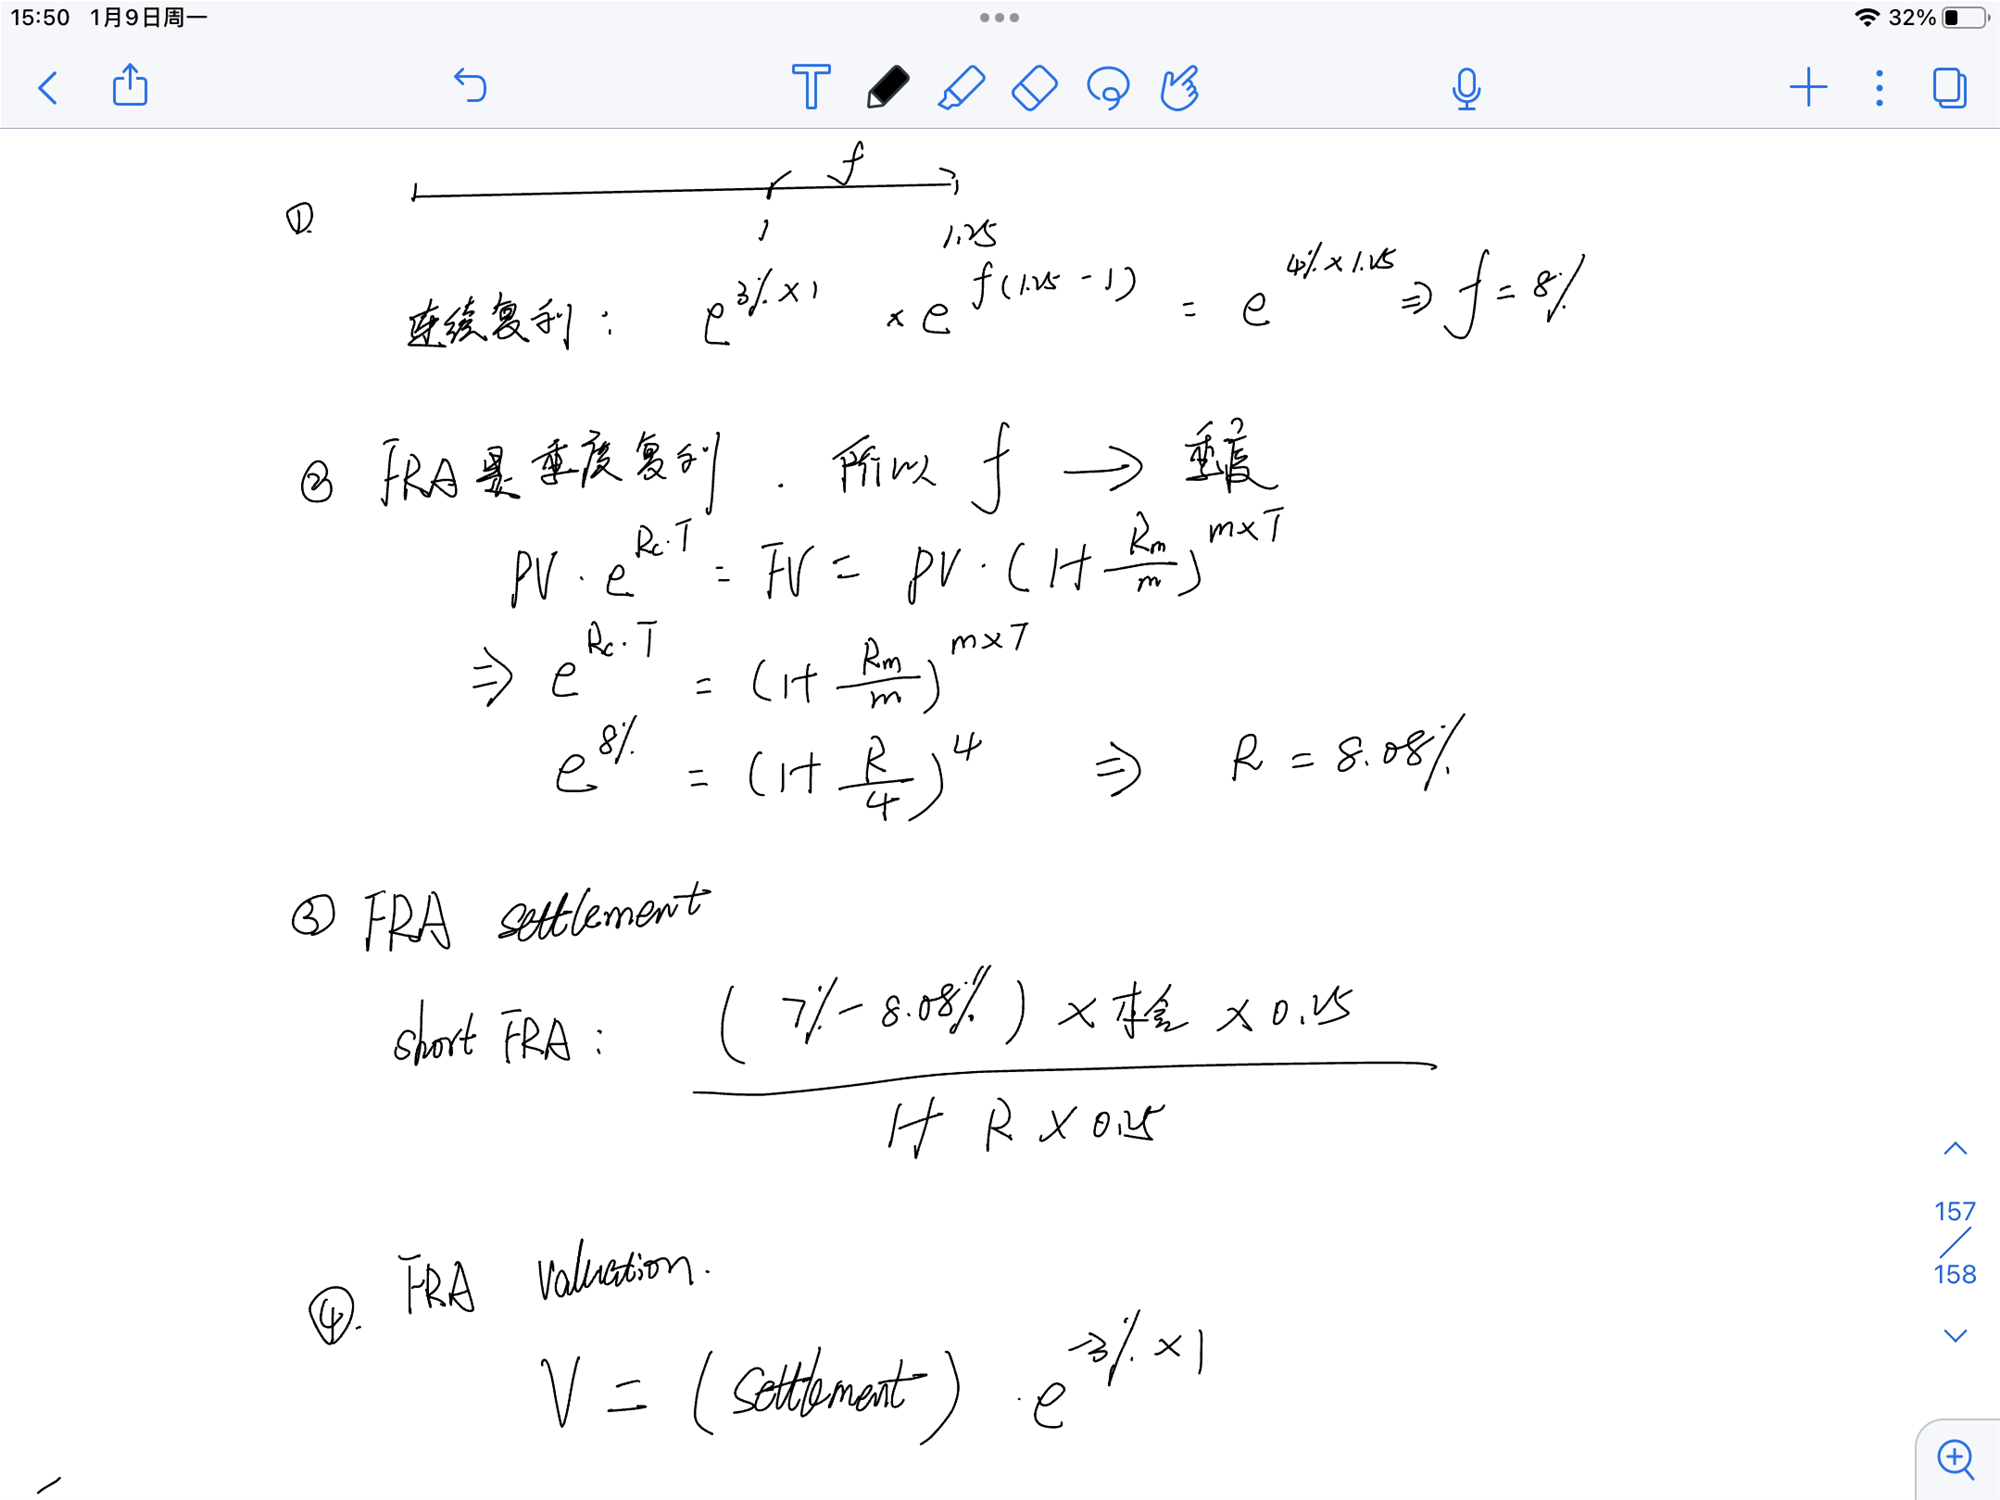 15:50 1月9日周一
32%
T
①
f
1
1.25
连续复利: e^{3%×1} × e^{f(1.25-1)} = e^{4%×1.25} ⇒ f = 8%
② FRA是季度复利. 所以 f → 季度
PV · e^{Rc·T} = FV = PV · (1+ Rm/m)^{m×T}
⇒ e^{Rc·T} = (1+ Rm/m)^{m×T}
e^{8%} = (1+ R/4)^4 ⇒ R = 8.08%
③ FRA settlement
short FRA: (7%-8.08%) × 本金 × 0.25
1+ R × 0.25
④. FRA valuation.
V = (settlement) · e^{-3%×1}
157
158